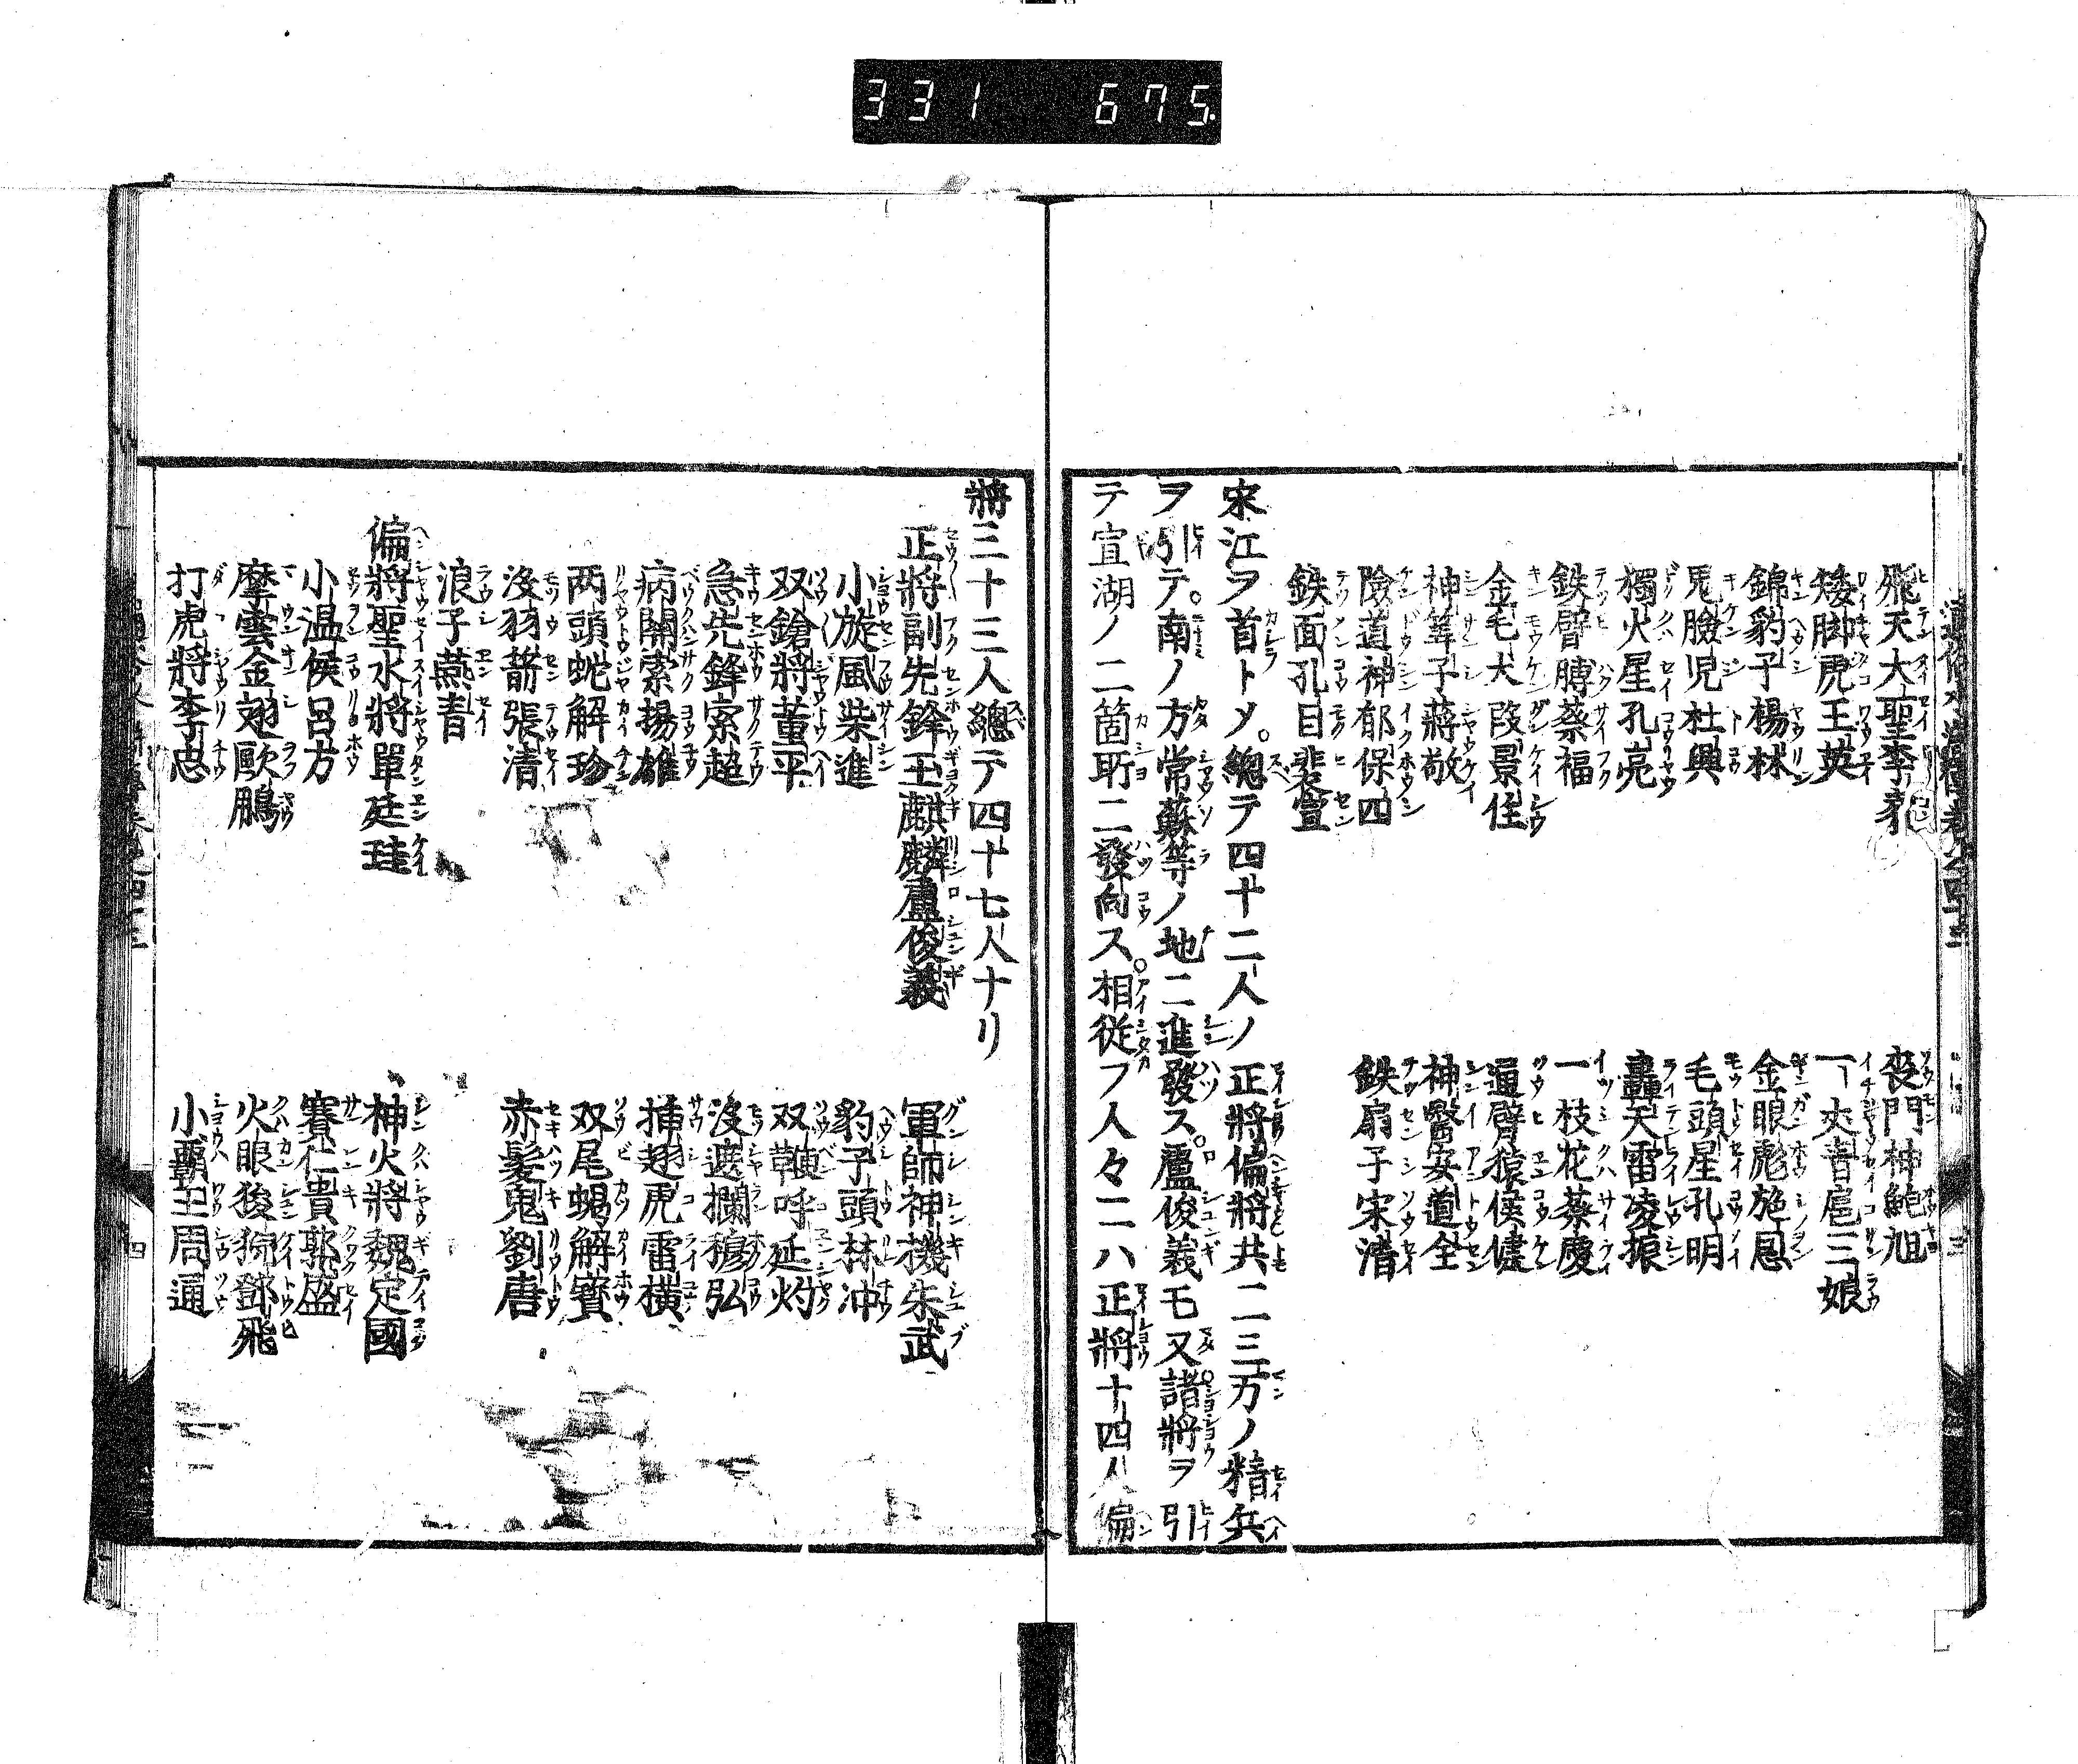 331 675
飛天大聖李袞 喪門神鮑旭
矮脚虎王英 一丈青扈三娘
錦豹子楊林 金眼彪施恩
鬼臉児杜興 毛頭星孔明
獨火星孔亮 轟天雷凌振
鉄臂膊蔡福 一枝花蔡慶
金毛犬段景住 通臂猿侯健
神筭子蔣敬 神醫安道全
險道神郁保四 鉄扇子宋清
鉄面孔目裴宣
宋江ヲ首トメ。總テ四十二人ノ正將偏將共ニ三万ノ精兵
ヲ引テ。南ノ方常蘇等ノ地ニ進發ス。盧俊義モ又諸將ヲ引
テ宣湖ノ二箇所ニ發向ス。相從フ人々ニハ正將十四人偏
將三十三人總テ四十七人ナリ
正將副先鋒玉麒麟盧俊義 軍師神機朱武
小旋風柴進 豹子頭林冲
双鎗將董平 双鞭呼延灼
急先鋒索超 沒遮攔穆弘
病關索楊雄 揷翅虎雷橫
两頭蛇解珍 双尾蝎解寶
沒羽箭張清 赤髪鬼劉唐
浪子燕青
偏將聖水將單廷珪 神火將魏定國
小温侯呂方 賽仁貴郭盛
摩雲金翅歐鵬 火眼狻猊鄧飛
打虎將李忠 小覇王周通
四